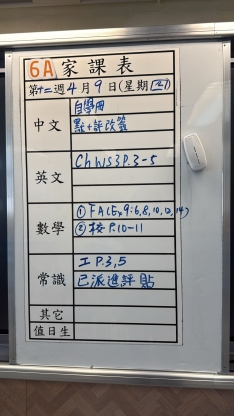 6A 家課表
第十二週 4月9日(星期二)
中文
自學冊
默+評改簽
英文
Ch WS3 P.3-5
數學
① FACEx9:6,8,10,12,14)
② 校 P.10-11
常識
工 P.3,5
已派進評貼
其它
值日生